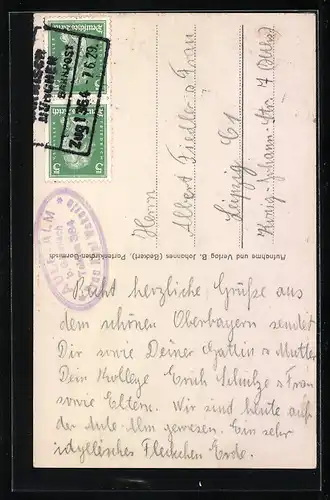 Deutsches Reich
MÜNCHEN
BAHNPOST
Zug
7.6.29
Herrn
Albert Fiedler & Frau
Leipzig C1
König-Johann-Str. 7
Aufnahme und Verlag B. Johannes (Beckert), Partenkirchen-Garmisch
AULE-ALM
Recht herzliche Grüße aus
dem schönen Oberbayern sendet
Dir sowie Deiner Gattin & Mutter
Dein Kollege Erich Schulze & Frau
sowie Eltern. Wir sind heute auf
der Aule-Alm gewesen. Ein sehr
idyllisches Fleckchen Erde.